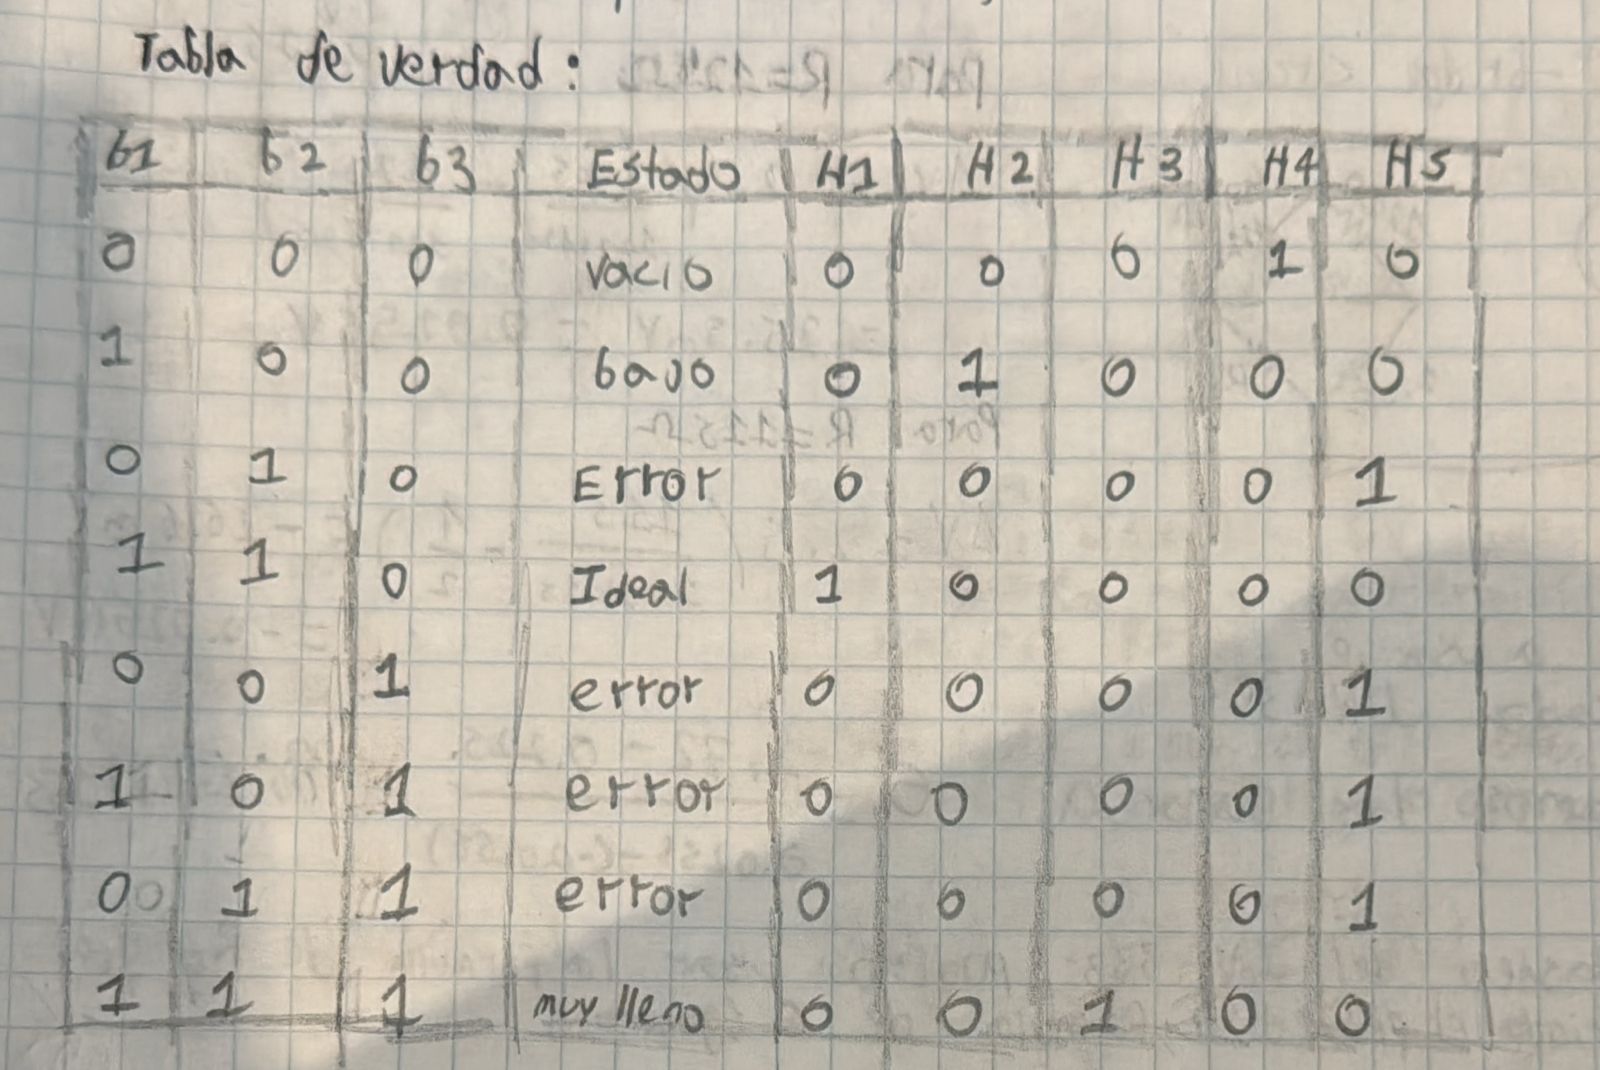 Tabla de verdad:
b1 b2 b3 Estado H1 H2 H3 H4 H5
0 0 0 vacio 0 0 0 1 0
1 0 0 bajo 0 1 0 0 0
0 1 0 Error 0 0 0 0 1
1 1 0 Ideal 1 0 0 0 0
0 0 1 error 0 0 0 0 1
1 0 1 error 0 0 0 0 1
0 1 1 error 0 0 0 0 1
1 1 1 muy lleno 0 0 1 0 0